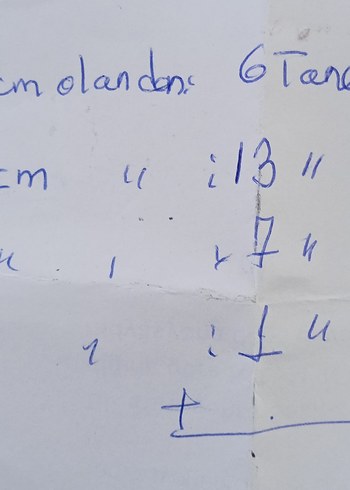 cm olandan: 6 Tane
cm " : 13 "
" " : 7 "
" : 1 "
+